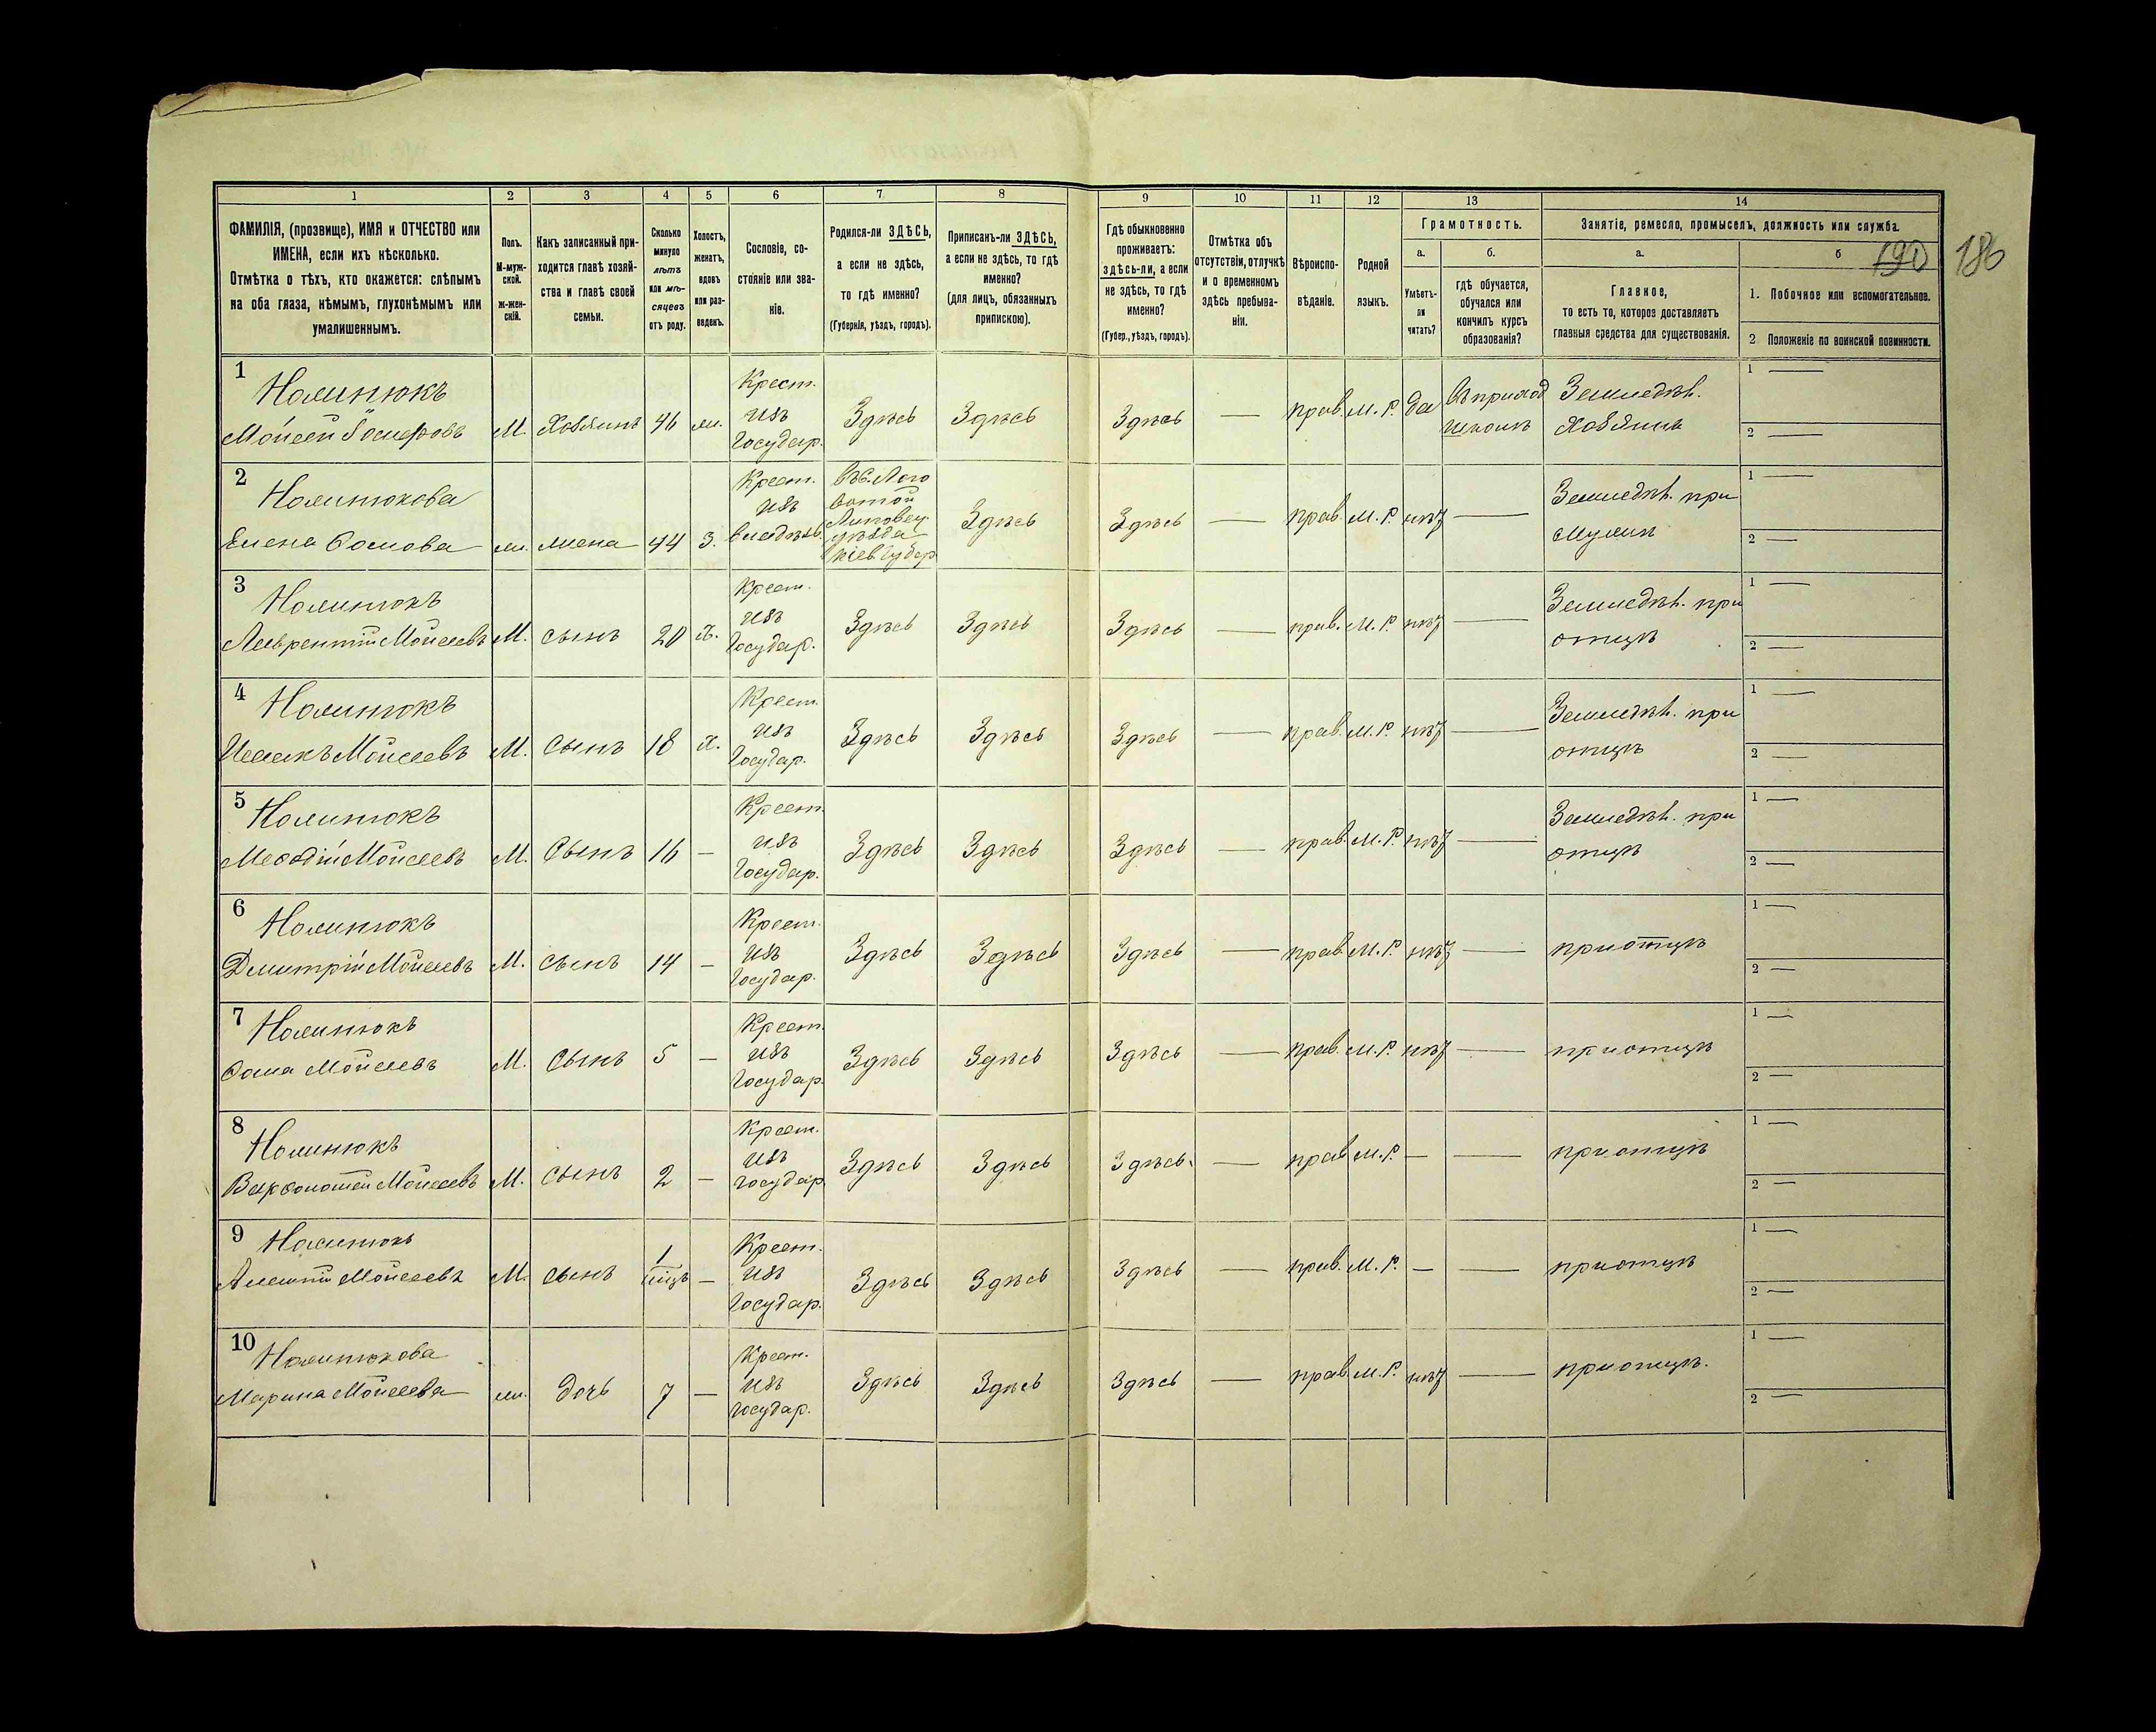 190 186
1
2
3
4
5
6
7
8
9
10
11
12
13
14
ФАМИЛІЯ, (прозвище), ИМЯ и ОТЧЕСТВО или
ИМЕНА, если ихъ нѣсколько.
Отмѣтка о тѣхъ, кто окажется: слѣпымъ
на оба глаза, нѣмымъ, глухонѣмымъ или
умалишеннымъ.
Полъ.
М-муж-
ской.
ж-жен-
скій.
Какъ записанный при-
ходится главѣ хозяй-
ства и главѣ своей
семьи.
Сколько
минуло
лѣтъ
или мѣ-
сяцевъ
отъ роду.
Холостъ,
женатъ,
вдовъ
или раз-
веденъ.
Сословіе, со-
стояніе или зва-
ніе.
Родился-ли ЗДѢСЬ,
а если не здѣсь,
то гдѣ именно?
(Губернія, уѣздъ, городъ).
Приписанъ-ли ЗДѢСЬ,
а если не здѣсь, то гдѣ
именно?
(для лицъ, обязанныхъ
припискою).
Гдѣ обыкновенно
проживаетъ:
здѣсь-ли, а если
не здѣсь, то гдѣ
именно?
(Губер., уѣздъ, городъ).
Отмѣтка объ
отсутствіи, отлучкѣ
и о временномъ
здѣсь пребыва-
ніи.
Вѣроиспо-
вѣданіе.
Родной
языкъ.
Грамотность.
а.
Умѣетъ-
ли
читать?
б.
гдѣ обучается,
обучался или
кончилъ курсъ
образованія?
Занятіе, ремесло, промыселъ, должность или служба.
а.
Главное,
то есть то, которое доставляетъ
главныя средства для существованія.
б
1. Побочное или вспомогательное.
2 Положеніе по воинской повинности.
1
Моисей
М. Хозяинъ 46 ж.
Крест.
изъ
Государ.
Здѣсь Здѣсь Здѣсь — прав. М. Р. да
въ приход
школѣ
Земледѣл.
Хозяинъ
1 —
2 —
2
Елена
ж. жена 44 З.
Крест.
изъ
владѣл.
Липовец.
уѣзда
Кіев. губер
Здѣсь Здѣсь — прав. М. Р. нѣт —
Земледѣл. при
мужѣ
1 —
2 —
3
Лаврентій Мойсеевъ М. сынъ 20 х.
Крест.
изъ
Государ.
Здѣсь Здѣсь Здѣсь — прав. М. Р. нѣт —
Земледѣл. при
отцѣ
1 —
2 —
4
Исаакъ Мойсеевъ М. Сынъ 18 х.
Крест.
изъ
Государ.
Здѣсь Здѣсь Здѣсь — прав. М. Р. нѣт —
Земледѣл. при
отцѣ
1 —
2 —
5
Меѳодій Мойсеевъ М. Сынъ 16 —
Крест.
изъ
Государ.
Здѣсь Здѣсь Здѣсь — прав. М. Р. нѣт —
Земледѣл. при
отцѣ
1 —
2 —
6
Дмитрій Мойсеевъ М. сынъ 14 —
Крест.
изъ
Государ.
Здѣсь Здѣсь Здѣсь — прав. М. Р. нѣт —
при отцѣ
1 —
2 —
7
Ѳома Мойсеевъ М. Сынъ 5 —
Крест.
изъ
Государ.
Здѣсь Здѣсь Здѣсь — прав. М. Р. нѣт —
при отцѣ
1 —
2 —
8
Мойсеевъ М. сынъ 2 —
Крест.
изъ
Государ.
Здѣсь Здѣсь Здѣсь — прав. М. Р. — —
при отцѣ
1 —
2 —
9
Мойсеевъ М. сынъ 1 —
Крест.
изъ
Государ.
Здѣсь Здѣсь Здѣсь — прав. М. Р. — —
при отцѣ
1 —
2 —
10
Марина Мойсеева ж. дочь 7 —
Крест.
изъ
Государ.
Здѣсь Здѣсь Здѣсь — прав. М. Р. нѣт —
при отцѣ.
1 —
2 —